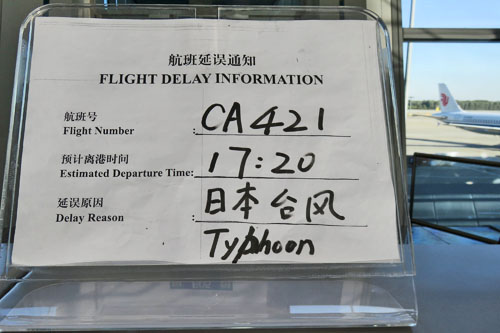 航班延误通知
FLIGHT DELAY INFORMATION
航班号
Flight Number : CA421
预计离港时间
Estimated Departure Time: 17:20
延误原因
Delay Reason : 日本台风
Typhoon